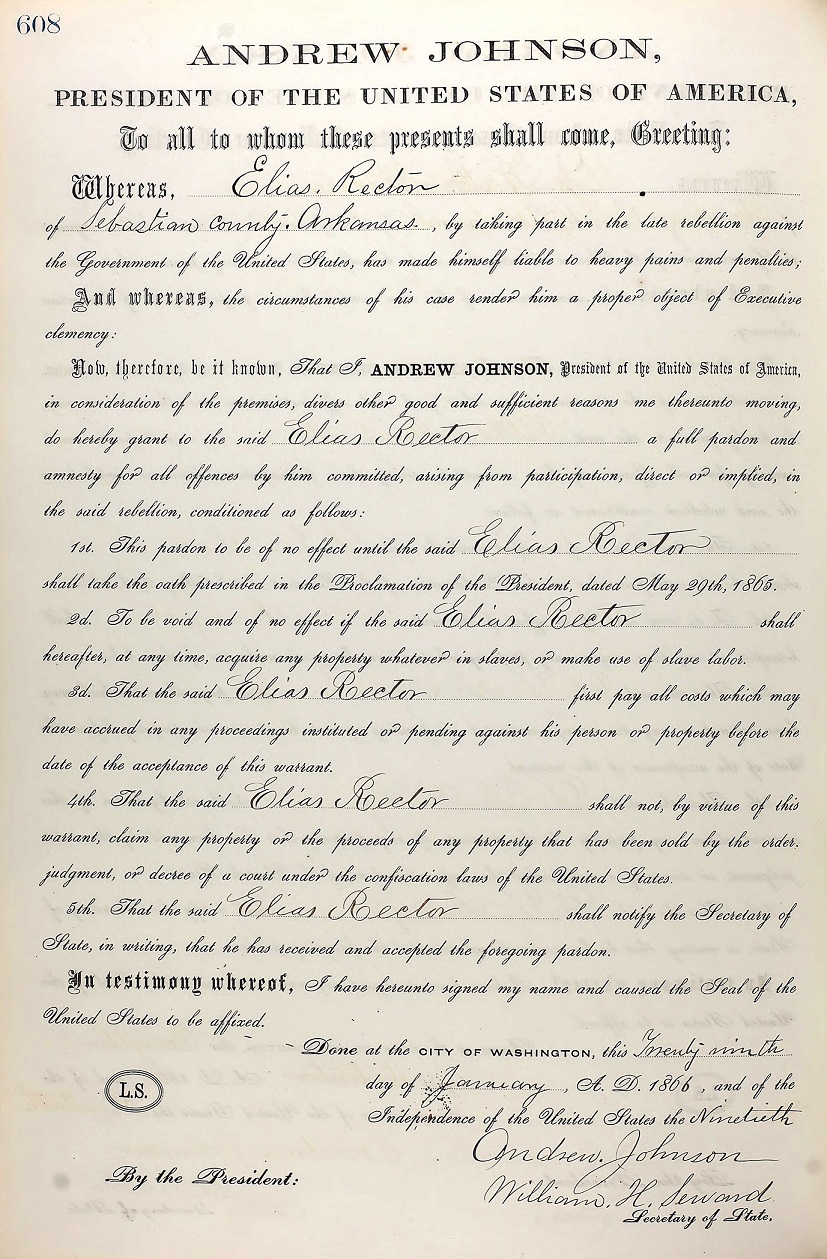 608
ANDREW JOHNSON,
PRESIDENT OF THE UNITED STATES OF AMERICA,
To all to whom these presents shall come, Greeting:
Whereas, Elias. Rector
of Sebastian county. Arkansas. , by taking part in the late rebellion against
the Government of the United States, has made himself liable to heavy pains and penalties;
And whereas, the circumstances of his case render him a proper object of Executive
clemency:
Now, therefore, be it known, That I, ANDREW JOHNSON, President of the United States of America,
in consideration of the premises, divers other good and sufficient reasons me thereunto moving,
do hereby grant to the said Elias Rector a full pardon and
amnesty for all offences by him committed, arising from participation, direct or implied, in
the said rebellion, conditioned as follows:
1st. This pardon to be of no effect until the said Elias Rector
shall take the oath prescribed in the Proclamation of the President, dated May 29th, 1865.
2d. To be void and of no effect if the said Elias Rector shall
hereafter, at any time, acquire any property whatever in slaves, or make use of slave labor.
3d. That the said Elias Rector first pay all costs which may
have accrued in any proceedings instituted or pending against his person or property before the
date of the acceptance of this warrant.
4th. That the said Elias Rector shall not, by virtue of this
warrant, claim any property or the proceeds of any property that has been sold by the order.
judgment, or decree of a court under the confiscation laws of the United States.
5th. That the said Elias Rector shall notify the Secretary of
State, in writing, that he has received and accepted the foregoing pardon.
In testimony whereof, I have hereunto signed my name and caused the Seal of the
United States to be affixed.
Done at the CITY OF WASHINGTON, this Twenty ninth
day of January , A. D. 1866 , and of the
L.S.
Independence of the United States the Ninetieth
Andrew. Johnson
By the President:
William. H. Seward
Secretary of State.